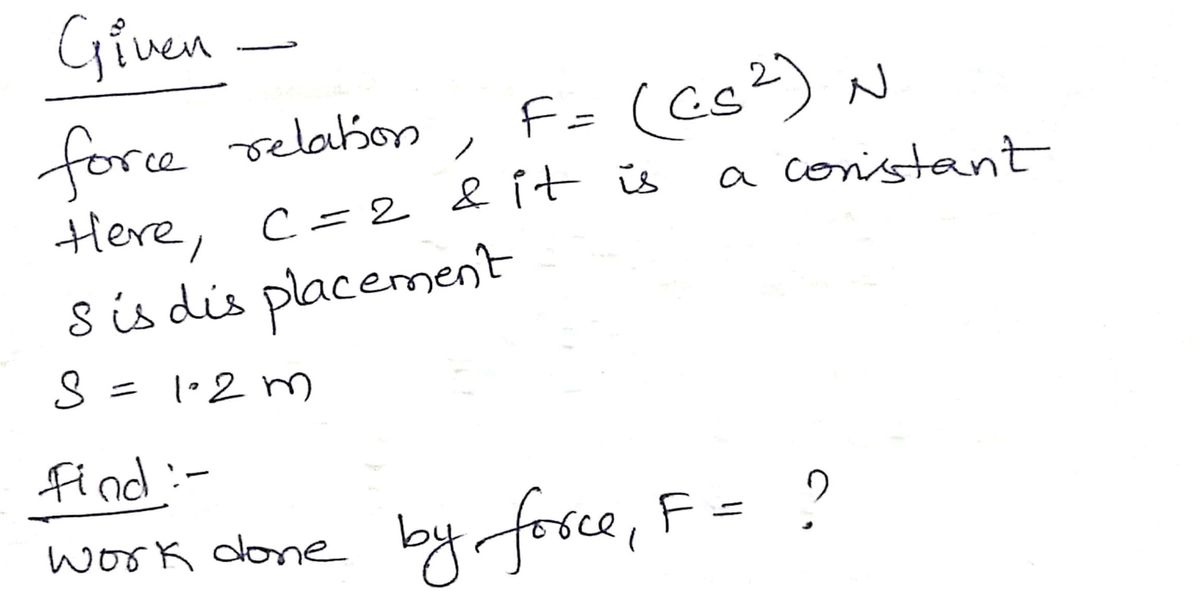 Given —
force relation, F = (Cs²) N
Here, C = 2 & it is a constant
s is displacement
S = 1.2 m
Find :-
Work done by force, F = ?